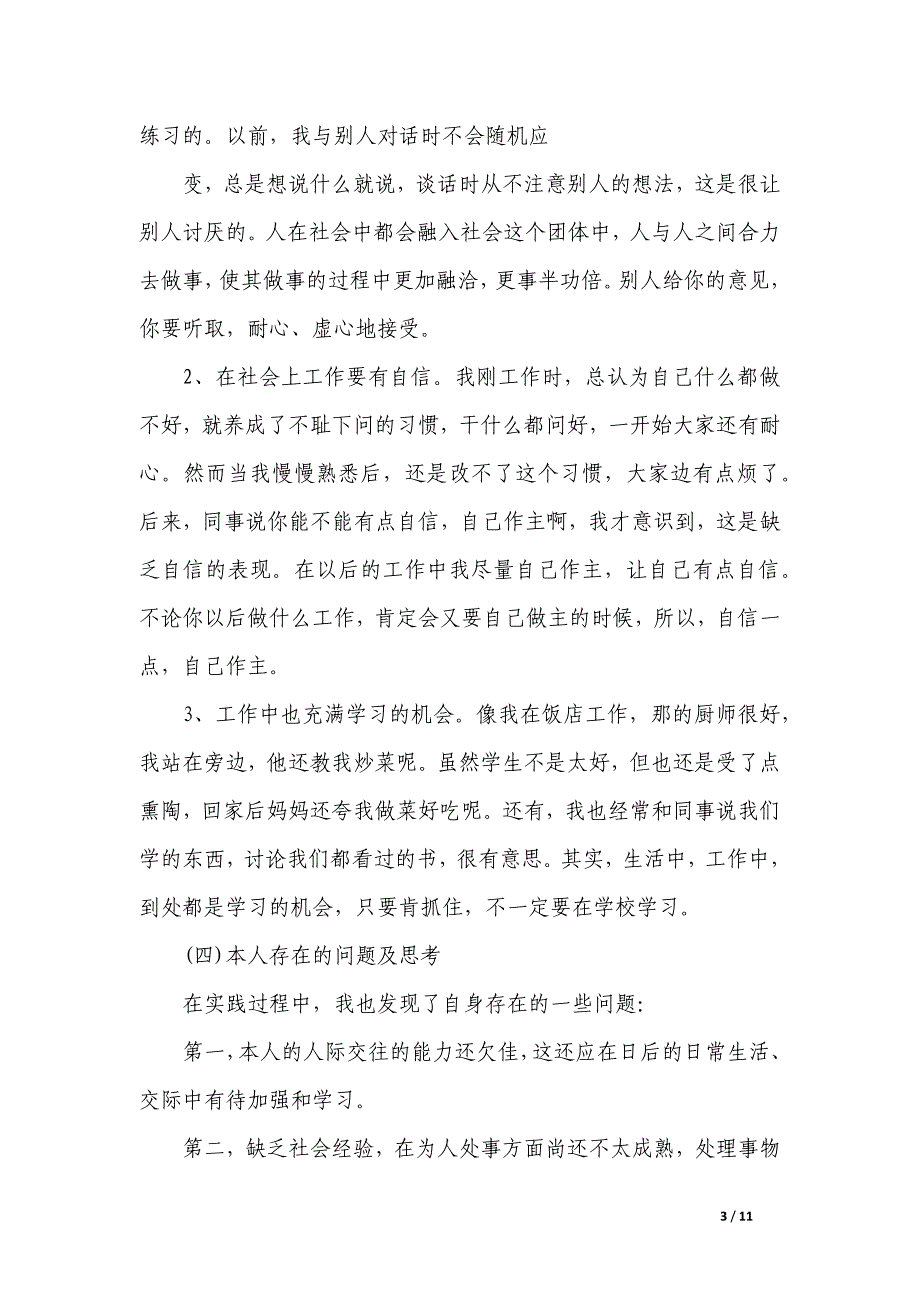 练习的。以前，我与别人对话时不会随机应
变，总是想说什么就说，谈话时从不注意别人的想法，这是很让
别人讨厌的。人在社会中都会融入社会这个团体中，人与人之间合力
去做事，使其做事的过程中更加融洽，更事半功倍。别人给你的意见，
你要听取，耐心、虚心地接受。
2、在社会上工作要有自信。我刚工作时，总认为自己什么都做
不好，就养成了不耻下问的习惯，干什么都问好，一开始大家还有耐
心。然而当我慢慢熟悉后，还是改不了这个习惯，大家边有点烦了。
后来，同事说你能不能有点自信，自己作主啊，我才意识到，这是缺
乏自信的表现。在以后的工作中我尽量自己作主，让自己有点自信。
不论你以后做什么工作，肯定会又要自己做主的时候，所以，自信一
点，自己作主。
3、工作中也充满学习的机会。像我在饭店工作，那的厨师很好，
我站在旁边，他还教我炒菜呢。虽然学生不是太好，但也还是受了点
熏陶，回家后妈妈还夸我做菜好吃呢。还有，我也经常和同事说我们
学的东西，讨论我们都看过的书，很有意思。其实，生活中，工作中，
到处都是学习的机会，只要肯抓住，不一定要在学校学习。
(四)本人存在的问题及思考
在实践过程中，我也发现了自身存在的一些问题：
第一，本人的人际交往的能力还欠佳，这还应在日后的日常生活、
交际中有待加强和学习。
第二，缺乏社会经验，在为人处事方面尚还不太成熟，处理事物
3 / 11